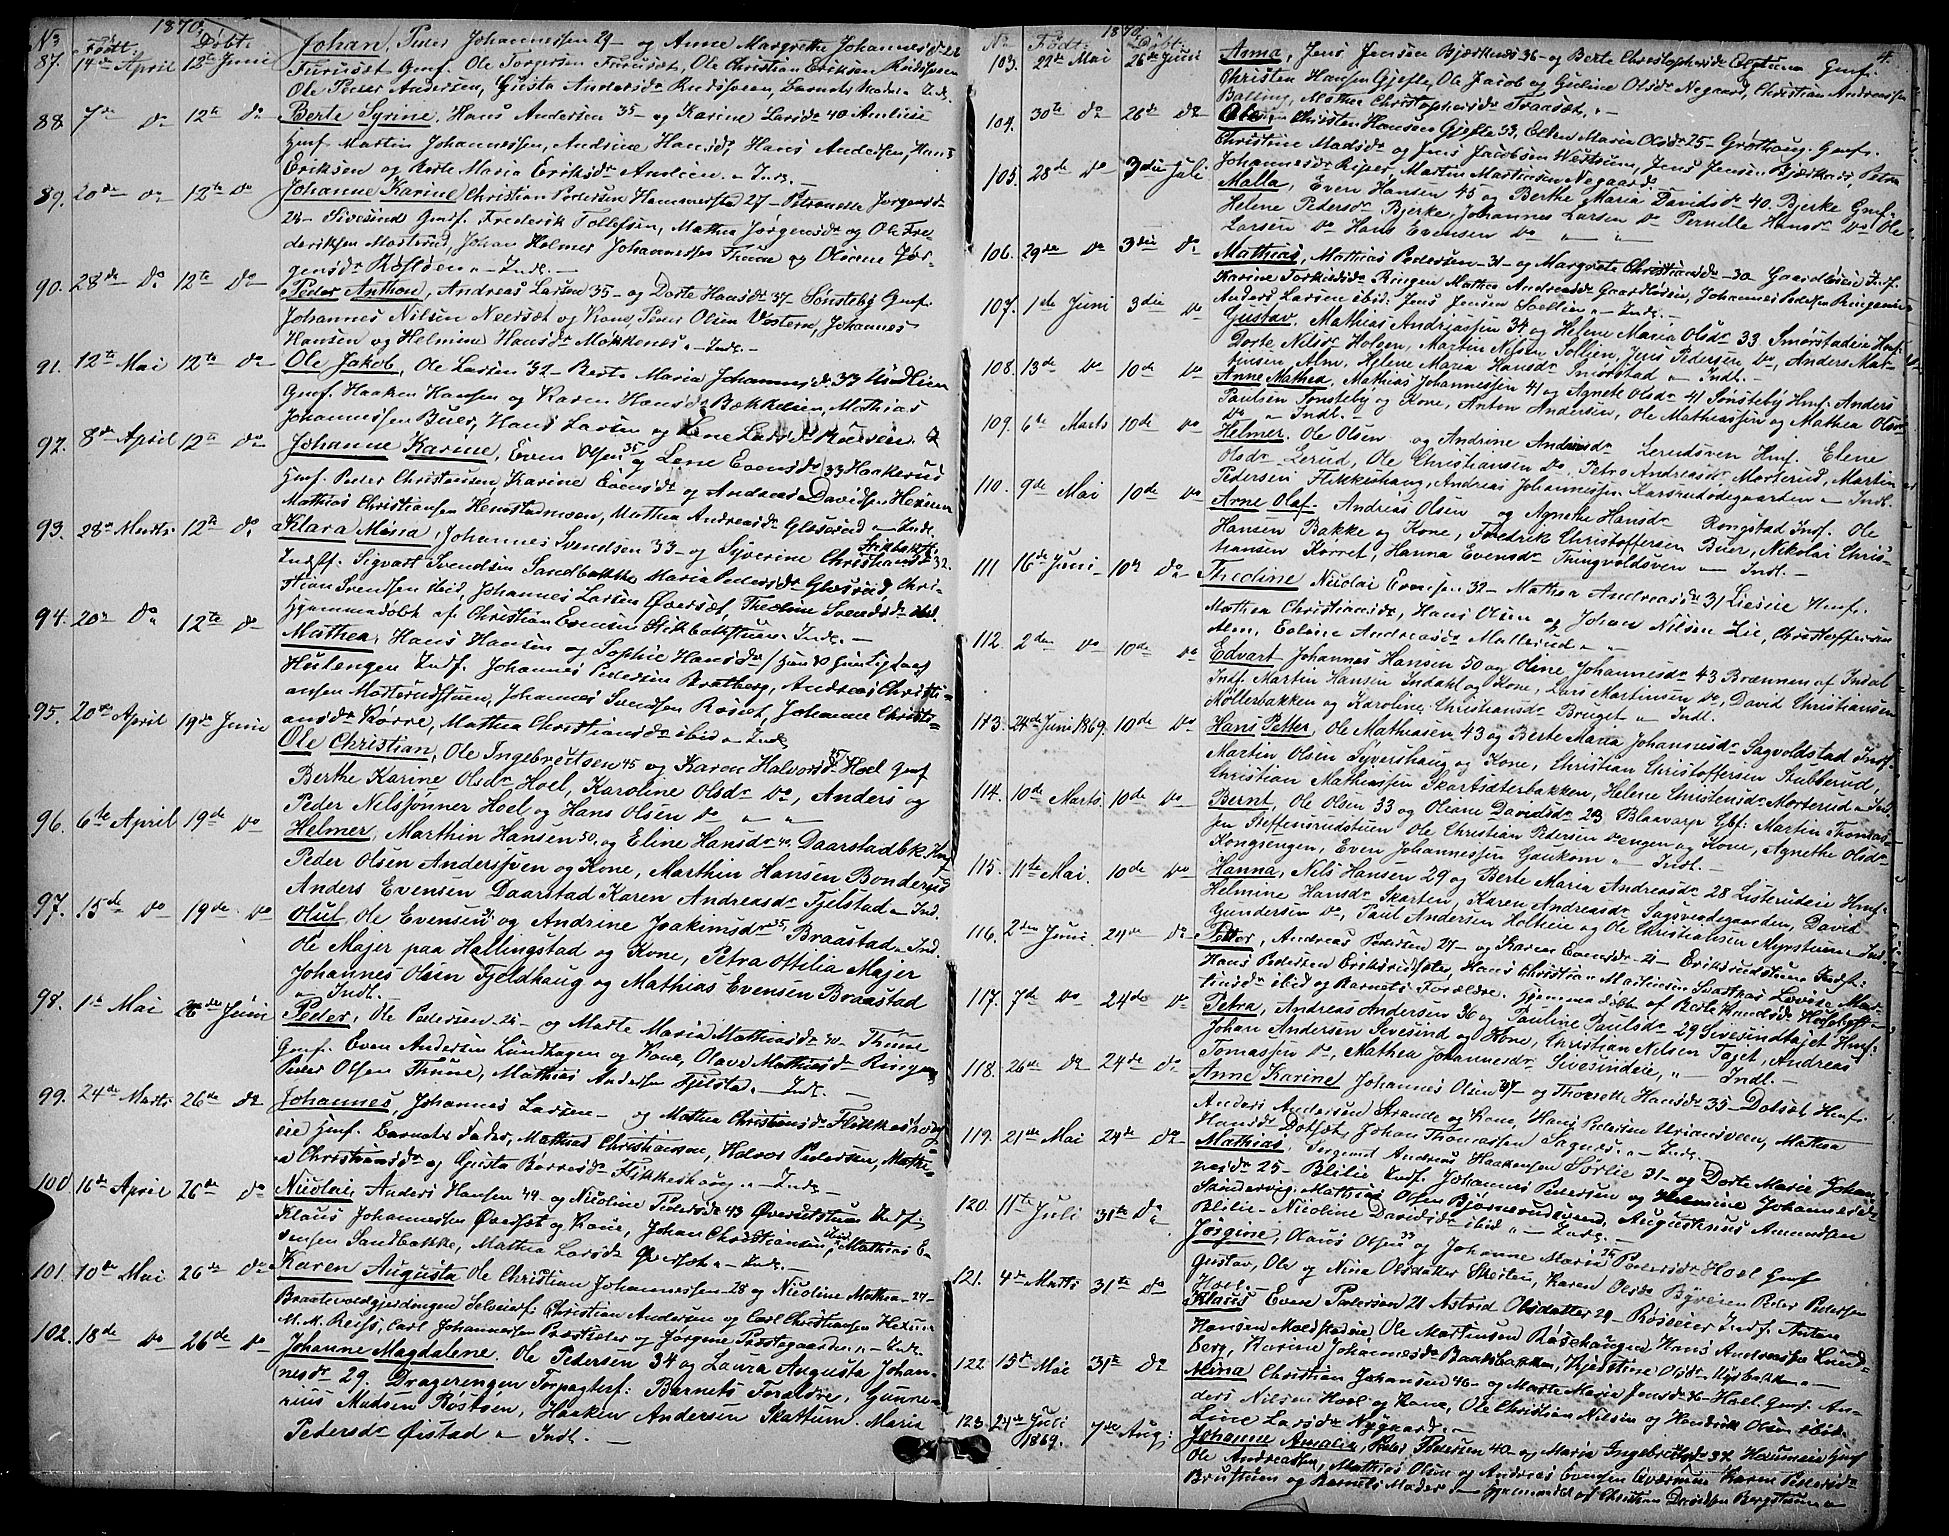 1870.
No Født: Døbt:
87. 14de April 12te Juni Johan, Peder Johannessen 29- og Anne Margrethe Johannesdr 22
Furusæt Gmf. Ole Torgersen Furusæt, Ole Christian Eriksen
Ole Peder Andersen, Gusta Andersdr Barnets Moder Indl.
88. 7de do 12te do Berte Syrine, Hans Andersen 35- og Karine Larsdr 40 Amlien
Hmf Martin Johannessen, Andrine Hansdr, Hans Andersen, Hans
Eriksen og Berte Maria Eriksdr Amlien. Indl.
89. 20de do 12te do Johanne Karine, Christian Pedersen Hammerstad 27- Petronelle Jørgensdr
Sivesind Gmf. Frederik Tollefsen, Mathea Jørgensdr og Ole Fre-
deriksen Mosterud, Johan Helmer Johannessen Thune og Olsine Jør-
gensdr Røstøen Indl.-
90. 28de do 12te do Peder Anthon, Andreas Larsen 35- og Dorte Hansdr 37- Sønsteby Gmf.
Johannes Nilsen Neersæt og Kone, Peder Olsen Vestern, Johannes
Hansen og Helmine Hansdr Møkkenæs Indl.-
91. 12te Mai 12te do Ole Jakob, Ole Larsen 32- Berte Maria Johannesdr 33
Gmf. Haaken Hansen og Karen Hansdr Bækkelien, Mathias
Johannessen Buer, Hans Larsen og Lene Larsdr
92. 8de April 12te do Johanne Karine, Even Olsen 35 og Lene Evensdr 33 Haakerud
Hmf. Peder Christiansen, Karine Evensdr og Andreas Davidsen Hexum
Mathias Christiansen Hengstadmoen, Mathea Andreasdr Glæserud Indl.
93. 28de Marts 12te do Klara Mina, Johannes Svendsen 33- og Syverine Christiansdr 32.
Indst. Sigvart Svendsen Sandbakke Maria Pedersdr Glæserud, Chri-
stian Svendsen ibid, Johannes Larsen Øversæt, Thedine Svendsdr ibid.
Hjemmedøbt af Christian Evensen Indl.-
94. 20de do 12te do Mathea, Hans Hansen og Sophie Hansdr
Hulengen Indf. Johannes Pedersen Bratberg, Andreas Christi-
ansen Mosterudstuen, Johannes Svendsen Røset, Johanne Christi-
ansdr Korre, Mathea Christiansdr ibid Indl.
95. 20de April 19de Juni Ole Christian, Ole Ingebretsen 45 og Karen Halvorsdr Hoel Gmf
Berthe Karine Olsdr Hoel, Karoline Olsdr do, Anders og
Peder Nilssønner Hoel og Hans Olsen do
96. 6te April 19de do Helmer, Marthin Hansen 50, og Eline Hansdr Daarstadbk. Hmf
Peder Olsen Andersven og Kone, Marthin Hansen Bonderud
Anders Evensen Daarstad Karen Andreasdr Fjelstad Ind.
97. 15de do 19de do Oluf, Ole Evensen og Andrine Joakimsdr 35, Braastad Ind.
Ole Majer paa Hallingstad og Kone, Petra Ottilia Majer
Johannes Olsen Fjeldhaug og Mathias Evensen Braastad
Indl.
98. 1te Mai 26de Juni Peder, Ole Pedersen og Marte Maria Mathiasdr Thune
Gmf. Even Andersen Lundhagen og Kone, Olave Mathiasdr Ringen
Peder Olsen Thune, Mathias Andersen Fjelsta. Indl.
99. 24de Marts 26de do Johannes, Johannes Larsen- og Mathea Christiansdr
eie Hmf. Barnets Fader, Mathias Christiansen, Halvor Pedersen, Mathe-
a Christiansdr og Gusta Børresdr Flikkeshoug Indl.-
100. 16de April 26de do Nicolai, Anders Hansen 44- og Nicoline Pedersdr 43 Indf.
Klaus Johannessen Øversæt og Kone, Johan Christiansen ibid, Mathias E-
vensen Sandbakke, Mathea Larsdr Øversæt Indl.-
101. 10de Mai 26de do Karen Augusta Ole Christian Johannessen 28 og Nicoline Mathea 24-
Braatevoldgjerdingen Selveierf: Christian Andersen og Carl Christiansen Hexum
M. N. Reiss, Carl Johannessen Præstseter og Jørgine Indl.
102. 18de do 26de do Johanne Magdalene. Ole Pedersen 34 og Laura Augusta Johan-
nesdr 29. Dragerengen Torpagterf: Barnets Forældre, Gunne-
rius Madsen Røstøen, Haaken Andersen Skattum. Maria
Pedersdr Øistad Indl.-
1870. 4.
No Født: Døbt:
103. 22de Mai 26de Juni Anna, Jens Jensen Bjærknes 36- og Berte Christophersdr Gmf.
Christen Hansen Gjefle, Ole Jacob og Guline Olsdr Negaard, Christian Andreassen
Balling, Mathea Christophersdr Traaset
104. 30te do 26de do Christen Hansen Gjefle 33, Ellen Maria Olsdr 25- Grøthaug Gmf.
Christine Madsdr og Jens Jacobsen Westrum, Jens Jensen Bjærknes, Petra
Johannesdr Riper, Martin Martinsen Negaard
105. 28de do 3die Juli Malla, Even Hansen 45 og Berthe Maria Davidsdr 40. Bjerke Gmf.
Helene Pedersdr Bjerke, Johannes Larsen do Pernille Hansdr do Ole
Larsen do Hans Evensen do
106. 29de do 3die do Mathias, Mathias Pedersen 31- og Margrete Christiansdr 30 Gaardløseie Inf.
Karine Torkildsdr Ringen Mathea Andreasdr Gaardløsen, Johannes Pedersen Ringen
Anders Larsen ibid: Jens Jensen Sollien Indl.
107. 1ste Juni 3die do Gustav, Mathias Andreassen 34 og Helene Maria Olsdr 33. Smørstadeie Hmf.
Dorte Nilsdr Holven, Martin Nilsen Sollien, Jens Pedersen do, Anders Mar-
tinsen Alm, Helene Maria Hansdr Smørstad Indl.-
108. 13de do 10de do Anne Mathea, Mathias Johannessen 41 og Agnete Olsdr 41 Sønsteby Hmf. Anders
Paulsen Sønsteby og Kone, Anton Andersen, Ole Mathiassen og Mathea Olsdr
do Indl.-
109. 6te Marts 10de do Helmer. Ole Olsen og Andrine Andersdr Lerudsven Hmf. Elene
Olsdr Lerud, Ole Christiansen do, Petra Andreasdr Mosterud, Martin
Pedersen Flikkeshaug, Andreas Johannessen Karsrudødegaarden Indl.
110. 9de Mai 10de do Arne Olaf. Andreas Olsen og Agnethe Hansdr Rongstad Indf. Ole
Hansen Bakke og Kone, Fredrik Christoffersen Buer, Nikolai Chris-
tiansen Korret, Hanna Evensdr Thingvoldsven Indl.-
111 16de Juni 10de do Thedine Nicolai Evensen 32- Mathea Andreasdr 31 Lieeie Hmf.
Mathea Christiansdr, Hans Olsen og Johan Nilsen Lie, Christoffersen
Alm, Eoline Andreasdr Mallerud
112. 2den do 10de do Edvart Johannes Hansen 50 og Oline Johannesdr 43 Brænnen af Indal
Indf. Martin Hansen Indahl og Kone, Lars Martinsen do, David Christiansen
Møllerbakken og Karoline Christiansdr Bruget Indl.
113. 24de Juni 1869. 10de do Hans Petter, Ole Mathiasen 43 og Berte Maria Johannesdr Sagvoldstad Indf.
Martin Olsen Syvershaug og Kone, Christian Christoffersen Stubberud,
Christian Mathiassen Skartsæterbakken, Helene Christensdr Mosterud Indl.
114. 10de Marts 10de do Bernt, Ole Olsen 33 og Oleane Davidsdr 23 Blaavarp Gbf: Martin Thomas-
sen Steffensrudstuen Ole Christian Pedersen Vengen og Kone, Agnethe Olsdr
Kongsengen, Even Johannessen Gaukom Indl.
115. 11te Mai. 10de do Hanna, Nels Hansen 29 og Berte Maria Andreasdr 28 Listerudeie Hmf:
Helmine Hansdr Skarten, Karen Andreasdr Sagsveødegaarden, David
Gundersen do, Paul Andersen Holtene og Ole Christiansen Mynstuen Indl
116. 2den Juni 24de do Petter, Andreas Pedersen 27- og Karen Evensdr 21- Eriksrudstuen Indst.
Hans Pedersen Eriksrudseter, Hans Christian Martinsen Lovise Mar-
tinsdr ibid og Barnets Forældre. Hjemmedøbt af Berte Knudsdr
117. 7de do 24de do Petra, Andreas Andersen 30 og Pauline Paulsdr 29 Sivesindtajet Hmf:
Johan Andersen Sivesind og Kone, Christian Nilsen Taget, Andreas
Tomassen do, Mathea Johannesdr Sivesindeie, Indl.-
118. 26de do 24de do Anne Karine Johannes Olsen 37- og Thorette Hansdr 35- Dotset Hmf.
Anders Andersen Strande og Kone, Hans Pedersen Urianssveen, Mathea
Hansdr Dotset, Johan Thomassen Sagnes. Indl.
119. 21de Mai 24de do Mathias, Sergeant Andreas Haakensen Sørlie 31- og Dorte Marie Johan-
nesdr 25- Blilie Indf. Johannes Pedersen og Helmine Johannesdr
Mathias Olsen Bjørnerudsveen, Augustinus Amundsen
Blilie- Nicoline Davidsdr ibid Indl.-
120. 11te Juli 31te do Jørgine, Olaus Olsen 33 og Johanne Maria Pedersdr Hoel Gmf
Gustav, Ole og Nina Olsdatter Skelten, Karen Olsdr Peder Pedersen
Hoel.-
121. 4de Marts 31te do Klaus Even Pedersen 21 Astrid Olsdatter 29- Røiseeie Indf. Anton
Hansen Moldstadeie Ole Martinsen Røsehaugen Hans Andreassen Lund-
berg, Karine Johannesdr Baaksbakken, Kjerstine Olsdr
122. 15de Mai 31te do Mina Christian Johansen 46- og Marte Maria Jensdr 36- Hoel Gmf. An-
ders Nilsen Hoel og Kone, Ole Christian Nilsen og Hendrik Olsen ibid
Line Larsdr Nygaard.-
123. 24de Juli 1869. 7de Aug: Johanne Amalie, Peder Pedersen 40- og Maria Ingebretsdr 37 Gmf
Ole Andreassen, Mathias Olsen og Andreas Evensen Karen Pedersdr
Brustuen og Barnets Moder Hjemmedøbt af Christian Davidsen Bergstuen